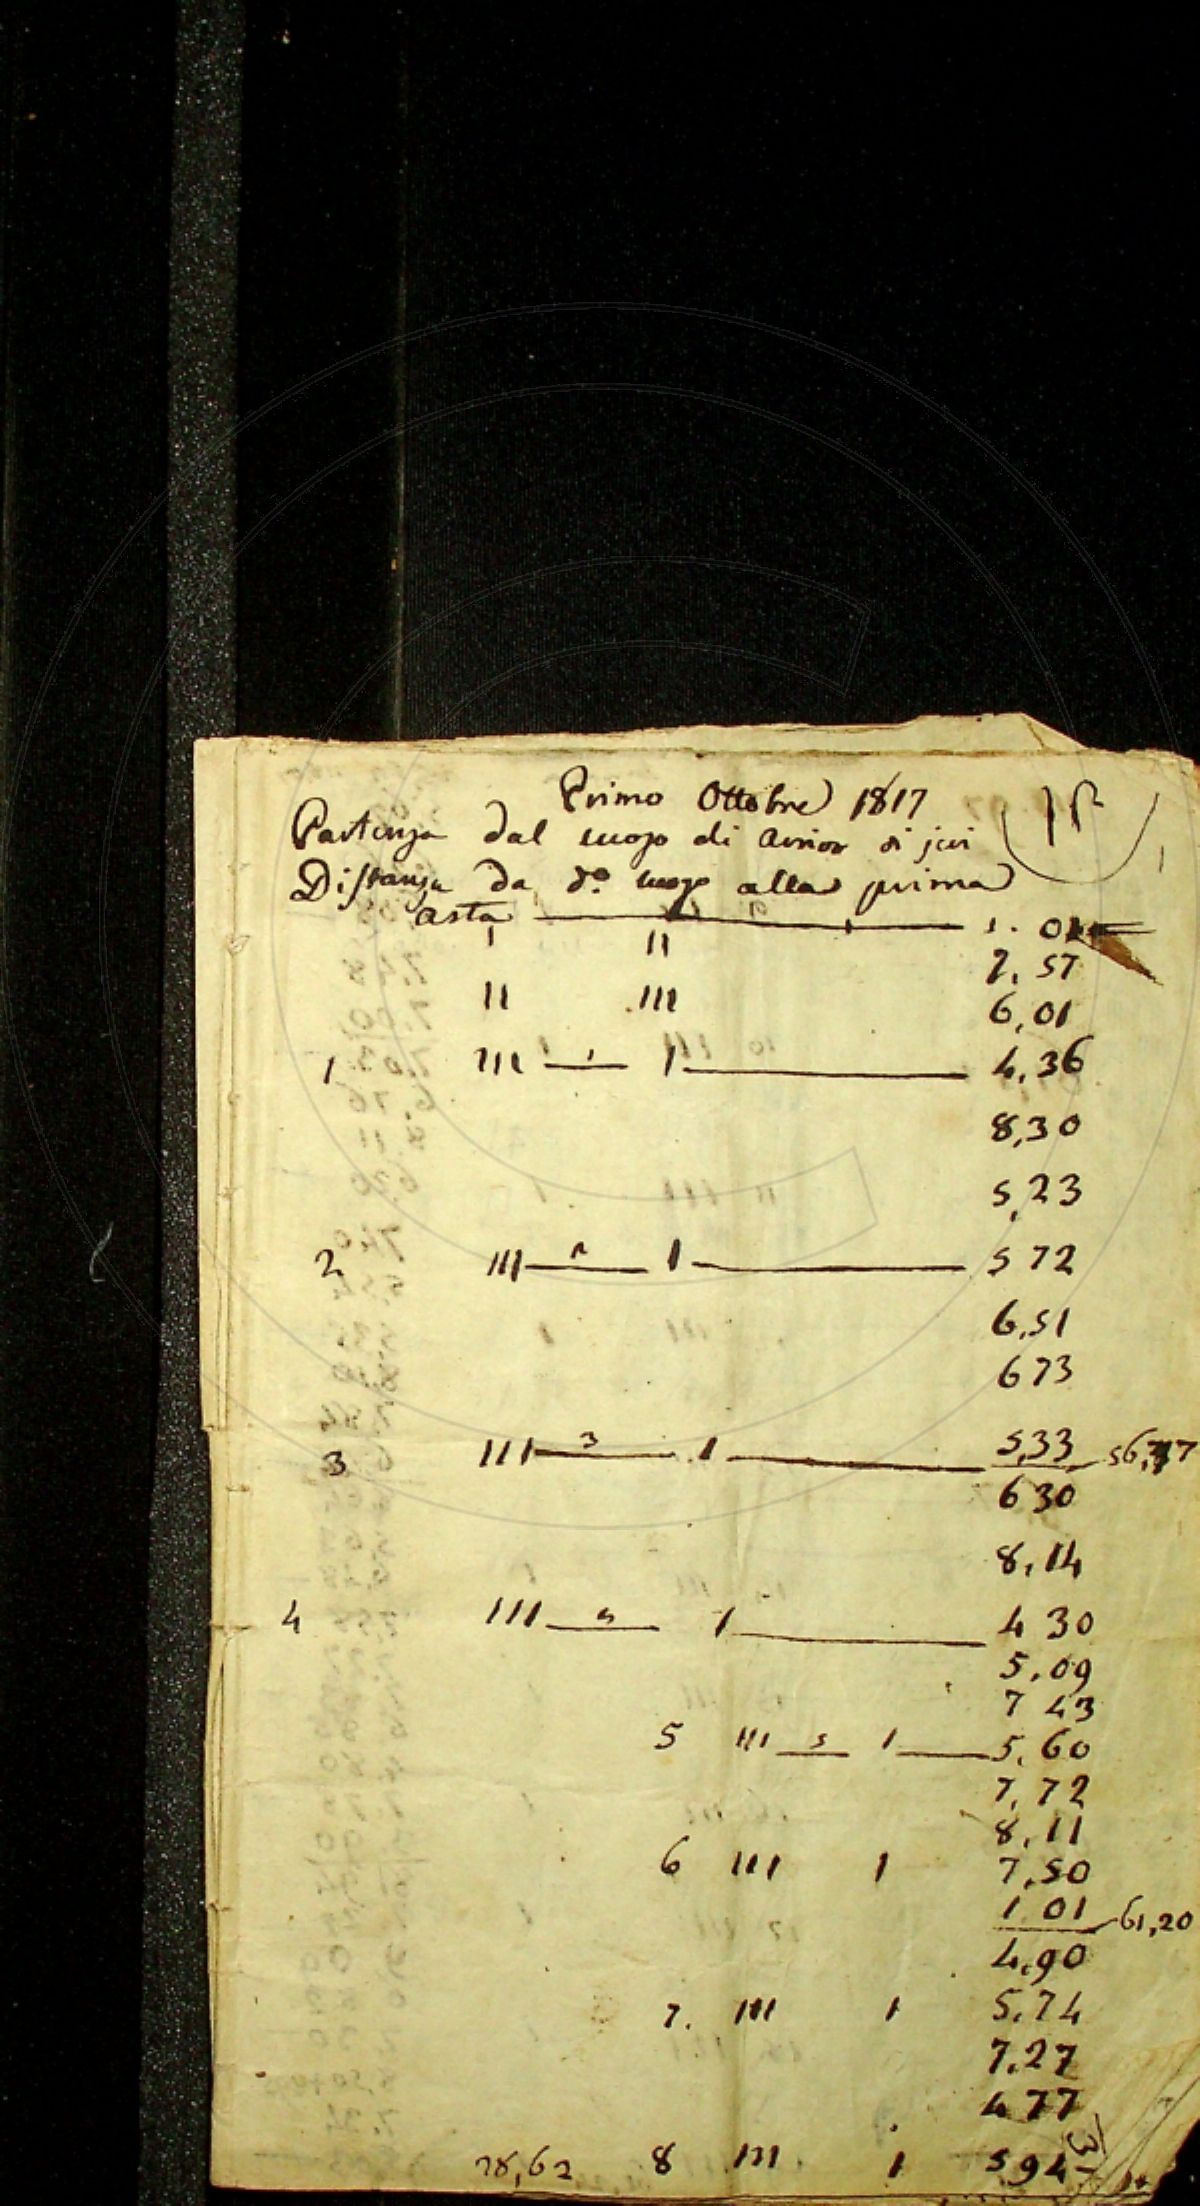 Primo Ottobre 1817
Partenza dal luogo di di jeri
Distanza da d.o luogo alla prima
asta 1. 01
I II 7,57
II III 6,01
1 III 1 I 4,36
8,30
5,23
2 III 2 I 5 72
6,51
6 73
3 III 3 I 5,33
6 30
8,14
4 III 4 I 4 30
5,09
7 43
5 III 5 I 5,60
7,72
8,11
6 III I 7,50
1 01 61,20
4,90
7. III I 5,74
7,27
4 77
28,62 8 III I 5 94